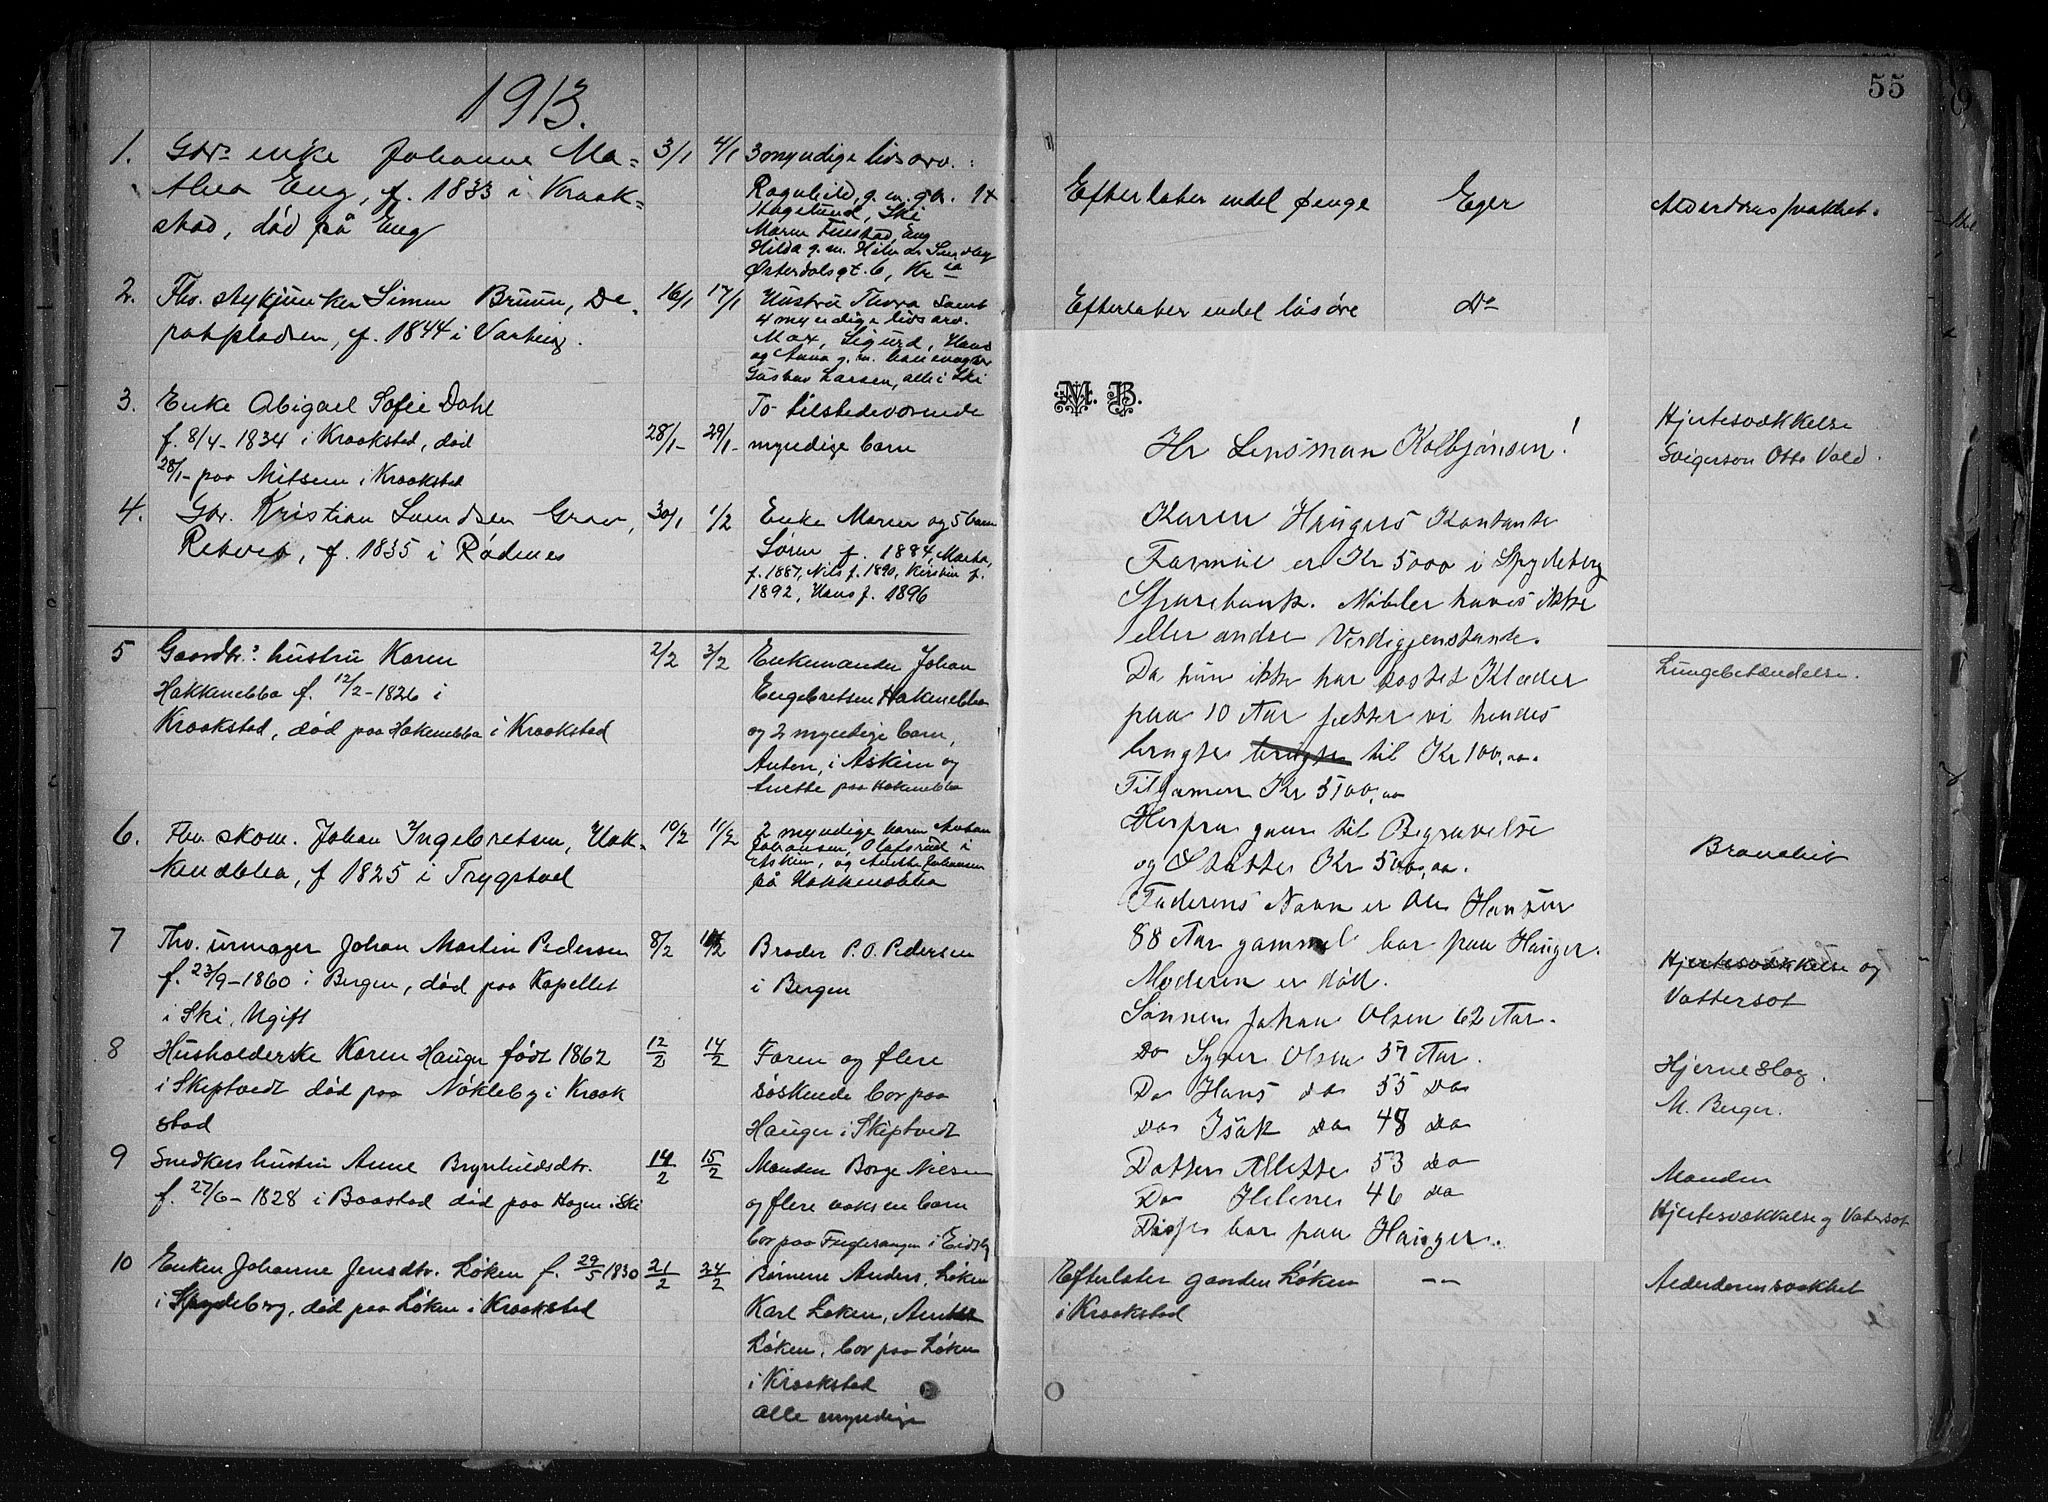 1913.
55
1. Gbr. enke Johanne Ma= 3/1 4/1 3 myndige livsarv. :
thea Eng, f. 1833 i Kraak=
stad, død på Eng
Ragnhild, g. m. gbr.
Hagelund, Ski
Maren Finstad, Eng
Hilda g. m. Hilmar Sundby
Østerdalsgt. 6, Kr ia
Efterlater endel penge Eger Alderdomssvakhet.
2. Fhv. stykjunker Simen Bruun, De= 16/1 17/1 Hustru Thora samt
potpladsen, f. 1844 i Varteig.
4 myndige livsarv.
Max, Sigurd, Hans
og Anna g. m. banevogter
Gustav Larsen, alle i Ski
Efterlater endel løsøre Do
3. Enke Abigael Sofie Dahl To tilstedeværende
f. 8/4-1834 i Kraakstad, død 28/1- 29/1- myndige barn
28/1- paa Mitsem i Kraakstad
Hjertesvækkelse
Svigersøn Otto Vold.
4. Gbr. Kristian Lundsen Grav, 30/1 1/2 Enke Maren og 5 barn
Retvet, f. 1835 i Rødenes
Søren f. 1884, Martha,
f. 1887, Nils f. 1890, Kirstin f.
1892, Hans f. 1896
5 Gaardbr.s hustru Karen 2/2 3/2 Enkemanden Johan
Hakkenebba f. 12/2-1826 i
Kraakstad, død paa Hakenebba i Kraakstad
Engebretsen Hakenebba
og 2 myndige barn,
Anton, i Askim og
Anette paa Hakenebba
Lungebetændelse.
6. Fhv. skom. Johan Ingebretsen, Hak- 10/2 11/2 2 myndige barn Anton
kenebba, f 1825 i Trygstad
Johansen, Olafsrud i
Askim, og Anette Johansen
på Hakkenebba
Bronchit
7 Fhv. urmager Johan Martin Pedersen 8/2 11/2 Broder P. O. Pedersen
f. 23/9-1860 i Bergen, død paa Kapellet i Bergen
i Ski, Ugift
Hjertesvækkelse og
Vattersot
8 Husholderske Karen Hauger født 1862 12/2 14/2 Faren og flere
i Skiptvedt død paa Nökleby i Kraak
stad
søskende bor paa
Hauger i Skiptvedt
Hjerneslag.
M. Berger.
9 Snedkers hustru Anne Brynhildsdtr. 14/2 15/2 Manden Borge Nilsen
f. 27/6-1828 i Baastad død paa Hagen i Ski
og flere voksne barn
bor paa Fuglerangen i Eidsbg
Manden
Hjertesvækkelse og Vatersot
10 Enken Johanne Jensdtr. Løken f. 29/5 1830 21/2 24/2 Børnene Anders Løken
i Spydeberg, død paa Løken i Kraakstad
Karl Løken, Anette
Løken, bor paa Løken
i Kraakstad
alle myndige
Efterlater gaarden Løken — —
i Kraakstad
Alderdomssvakhet
M. B.
Hr Lensman Kolbjønsen!
Karen Haugers Kontante
Formue er Kr 5000 i Spydeberg
Sparebank. Møbler haves ikke
eller andre Verdigjenstande.
Da hun ikke har kostet Klæder
paa 10 Aar sætter vi hendes
brugte brugte til Kr 100,00.
Tilsamen Kr 5100,00
Herfra gaar til Begravelse
og Støtte Kr 500,00.
Faderens Navn er Ole Hansen
88 Aar gammel bor paa Hauger.
Moderen er død.
Sønnen Johan Olsen 62 Aar.
Do Syver Olsen 57 Aar.
Do Hans do 55 Do
Do Isak do 48 Do
Datter Allette 53 do
Do Helene 46 do
Disse bor paa Hauger.